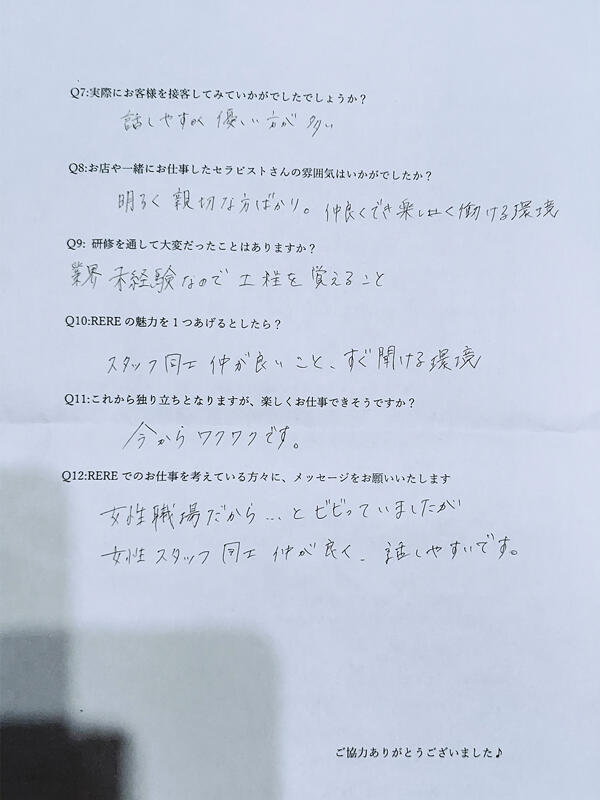 Q7:実際にお客様を接客してみていかがでしたでしょうか？
話しやすく 優しい方が多い
Q8:お店や一緒にお仕事したセラピストさんの雰囲気はいかがでしたか？
明るく親切な方ばかり。仲良くでき楽しく働ける環境
Q9: 研修を通して大変だったことはありますか？
業界未経験なので工程を覚えること
Q10:REREの魅力を1つあげるとしたら？
スタッフ同士仲が良いこと、すぐ聞ける環境
Q11:これから独り立ちとなりますが、楽しくお仕事できそうですか？
今からワクワクです。
Q12:REREでのお仕事を考えている方々に、メッセージをお願いいたします
女性職場だから…とビビっていましたが
女性スタッフ同士仲が良く、話しやすいです。
ご協力ありがとうございました♪